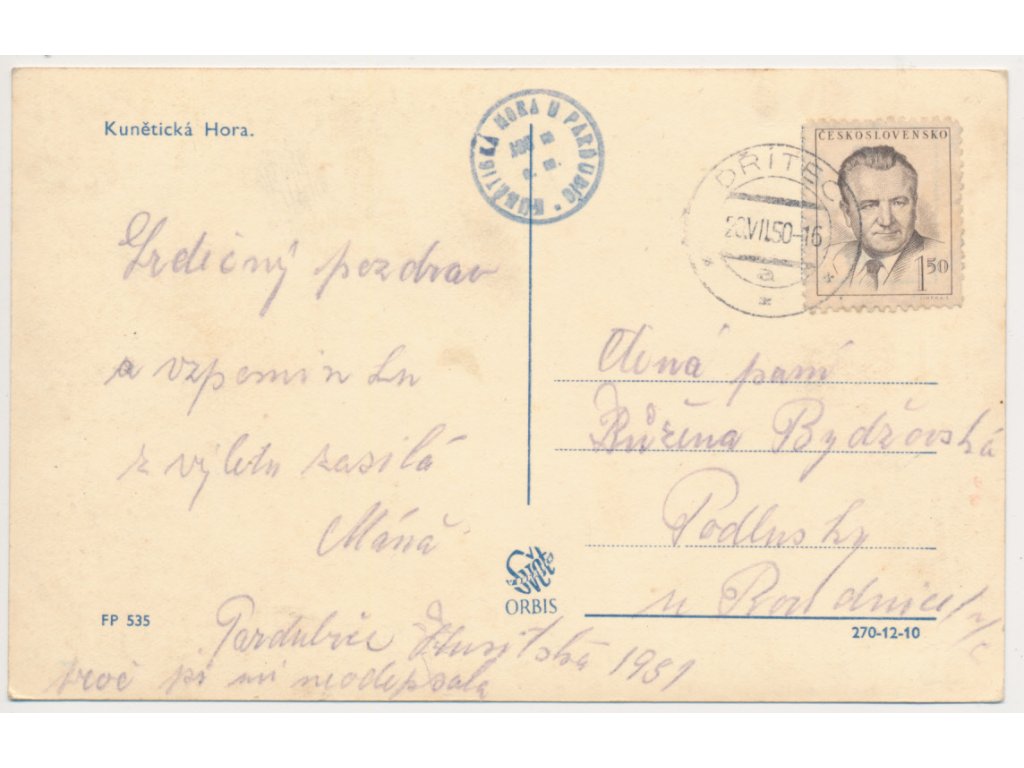 Kunětická Hora.
KUNĚTICKÁ HORA U PARDUBIC
ČESKOSLOVENSKO
DŘÍTEČ
20.VII.50-16
a
1 50
Srdečný pozdrav
a vzpomínku
z výletu zasílá
Máňa
Ctěná paní
Růžena Bydžovská
Podlusky
u Roudnice n/L
Svět
ORBIS
FP 535
270-12-10
Pardubice Husitská 1951
proč si mi neodepsala